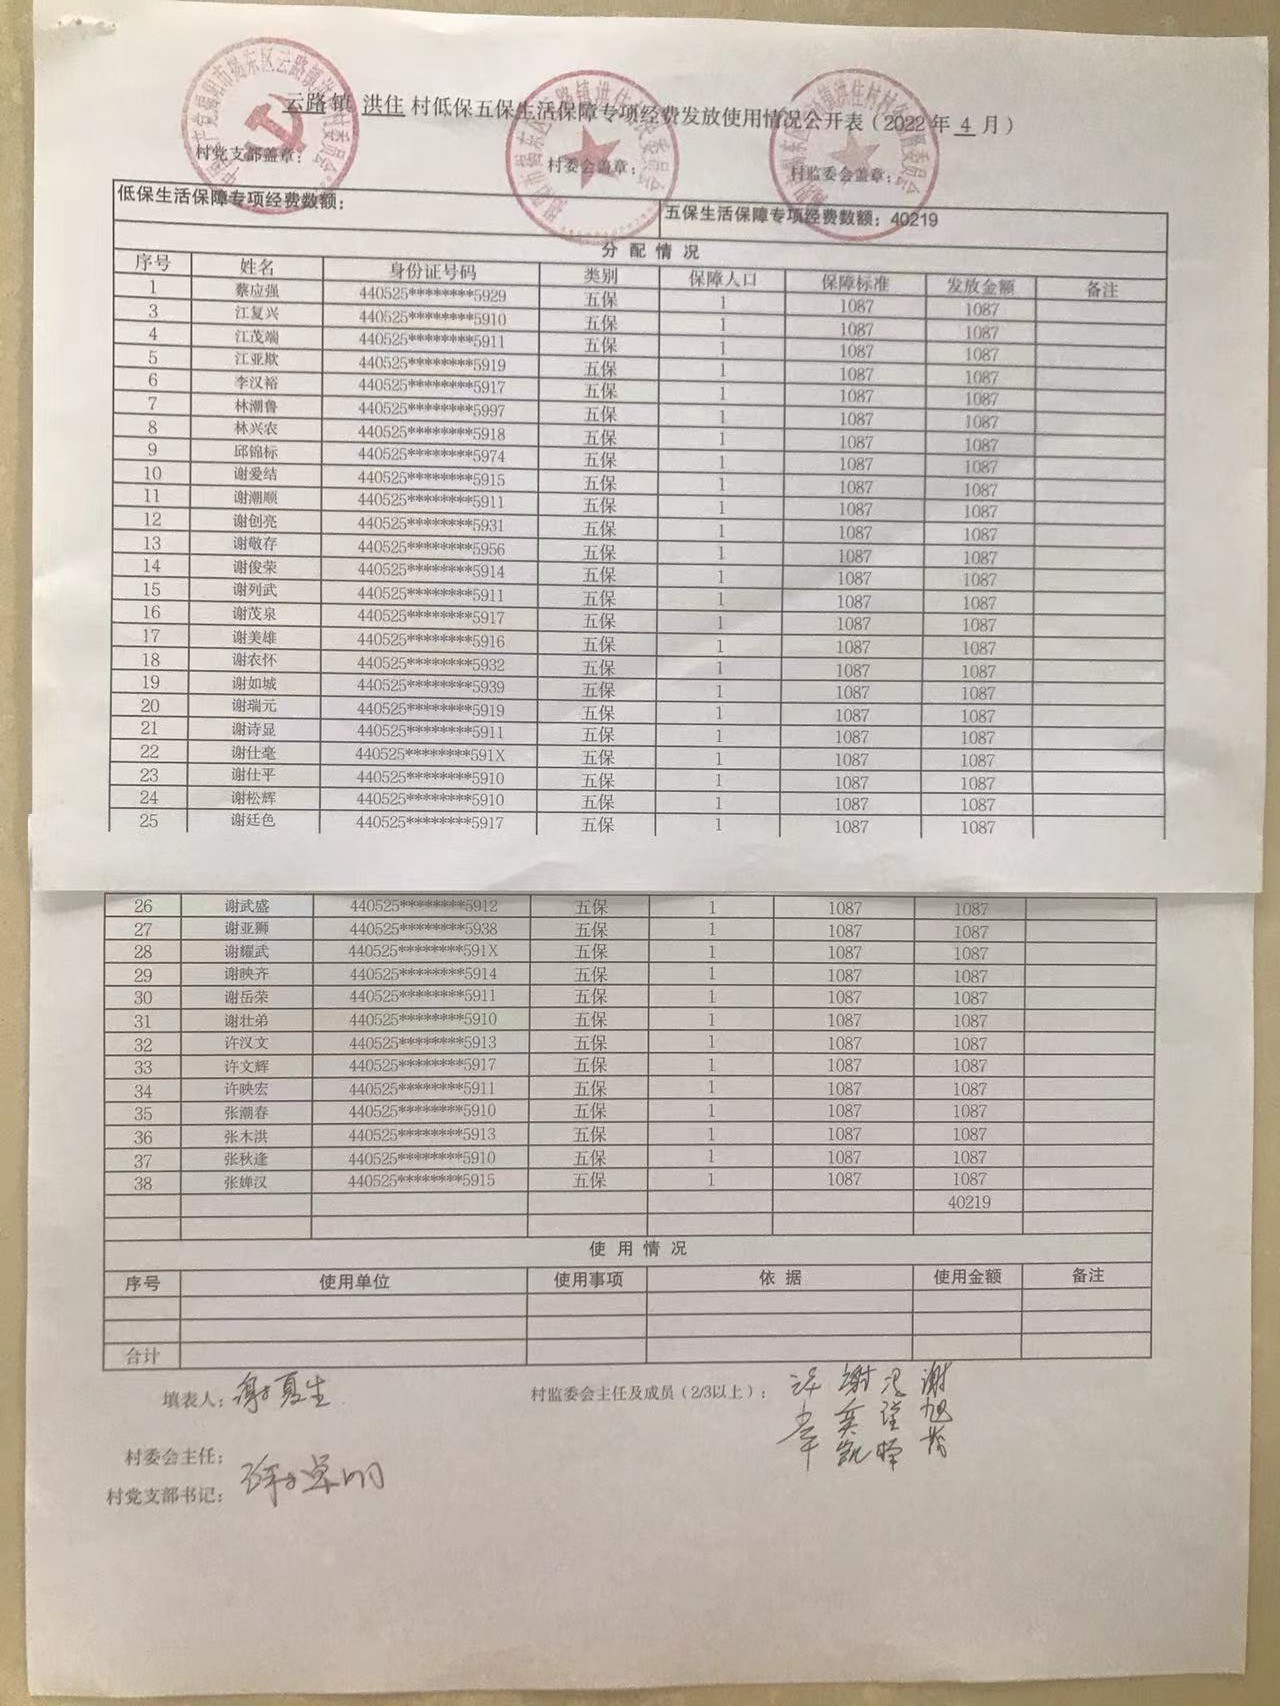 云路 镇 洪住 村低保五保生活保障专项经费发放使用情况公开表（2022 年 4 月）
村党支部盖章： 村委会盖章： 村监委会盖章：
低保生活保障专项经费数额： 五保生活保障专项经费数额：40219
分 配 情 况
序号 姓名 身份证号码 类别 保障人口 保障标准 发放金额 备注
1 蔡应强 440525********5929 五保 1 1087 1087
3 江复兴 440525********5910 五保 1 1087 1087
4 江茂端 440525********5911 五保 1 1087 1087
5 江亚欺 440525********5919 五保 1 1087 1087
6 李汉裕 440525********5917 五保 1 1087 1087
7 林潮鲁 440525********5997 五保 1 1087 1087
8 林兴农 440525********5918 五保 1 1087 1087
9 邱锦标 440525********5974 五保 1 1087 1087
10 谢爱结 440525********5915 五保 1 1087 1087
11 谢潮顺 440525********5911 五保 1 1087 1087
12 谢创亮 440525********5931 五保 1 1087 1087
13 谢敬存 440525********5956 五保 1 1087 1087
14 谢俊荣 440525********5914 五保 1 1087 1087
15 谢列武 440525********5911 五保 1 1087 1087
16 谢茂泉 440525********5917 五保 1 1087 1087
17 谢美雄 440525********5916 五保 1 1087 1087
18 谢农怀 440525********5932 五保 1 1087 1087
19 谢如城 440525********5939 五保 1 1087 1087
20 谢瑞元 440525********5919 五保 1 1087 1087
21 谢诗显 440525********5911 五保 1 1087 1087
22 谢仕毫 440525********591X 五保 1 1087 1087
23 谢仕平 440525********5910 五保 1 1087 1087
24 谢松辉 440525********5910 五保 1 1087 1087
25 谢廷色 440525********5917 五保 1 1087 1087
26 谢武盛 440525********5912 五保 1 1087 1087
27 谢亚狮 440525********5938 五保 1 1087 1087
28 谢耀武 440525********591X 五保 1 1087 1087
29 谢映齐 440525********5914 五保 1 1087 1087
30 谢岳荣 440525********5911 五保 1 1087 1087
31 谢壮弟 440525********5910 五保 1 1087 1087
32 许汉文 440525********5913 五保 1 1087 1087
33 许文辉 440525********5917 五保 1 1087 1087
34 许映宏 440525********5911 五保 1 1087 1087
35 张潮春 440525********5910 五保 1 1087 1087
36 张木洪 440525********5913 五保 1 1087 1087
37 张秋逢 440525********5910 五保 1 1087 1087
38 张婵汉 440525********5915 五保 1 1087 1087
40219
使 用 情 况
序号 使用单位 使用事项 依 据 使用金额 备注
合计
填表人：谢夏生 村监委会主任及成员（2/3以上）：
村委会主任：
村党支部书记：